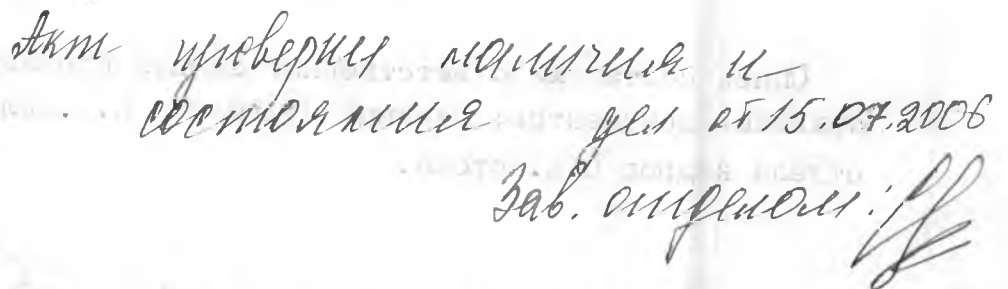 Акт проверки наличия и
состояния дел от 15.07.2006
Зав. отделом: